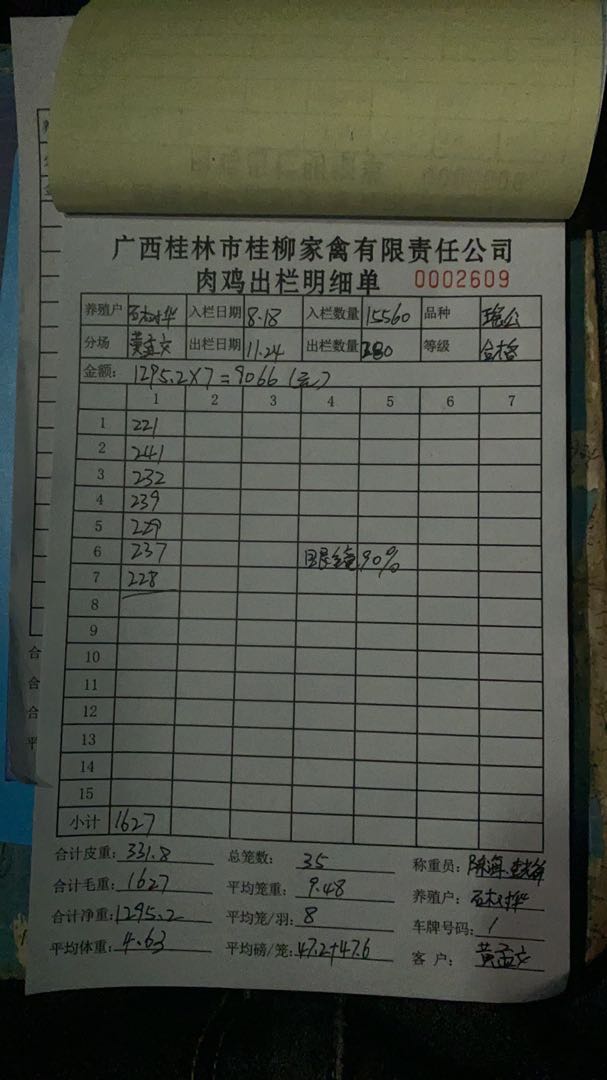 广西桂林市桂柳家禽有限责任公司
肉鸡出栏明细单 0002609
养殖户 入栏日期 8.18 入栏数量 15560 品种 瑶公
分场 黄孟文 出栏日期 11.24 出栏数量 280 等级 合格
金额: 1295.2×7=9066(元)
1 2 3 4 5 6 7
1 221
2 241
3 232
4 239
5 229
6 237 90%
7 228
8
9
10
11
12
13
14
15
小计 1627
合计皮重: 331.8 总笼数: 35 称重员: 陈海
合计毛重: 1627 平均笼重: 9.48 养殖户:
合计净重: 1295.2 平均笼/羽: 8 车牌号码: 1
平均体重: 4.63 平均磅/笼: 47.2+47.6 客户: 黄孟文